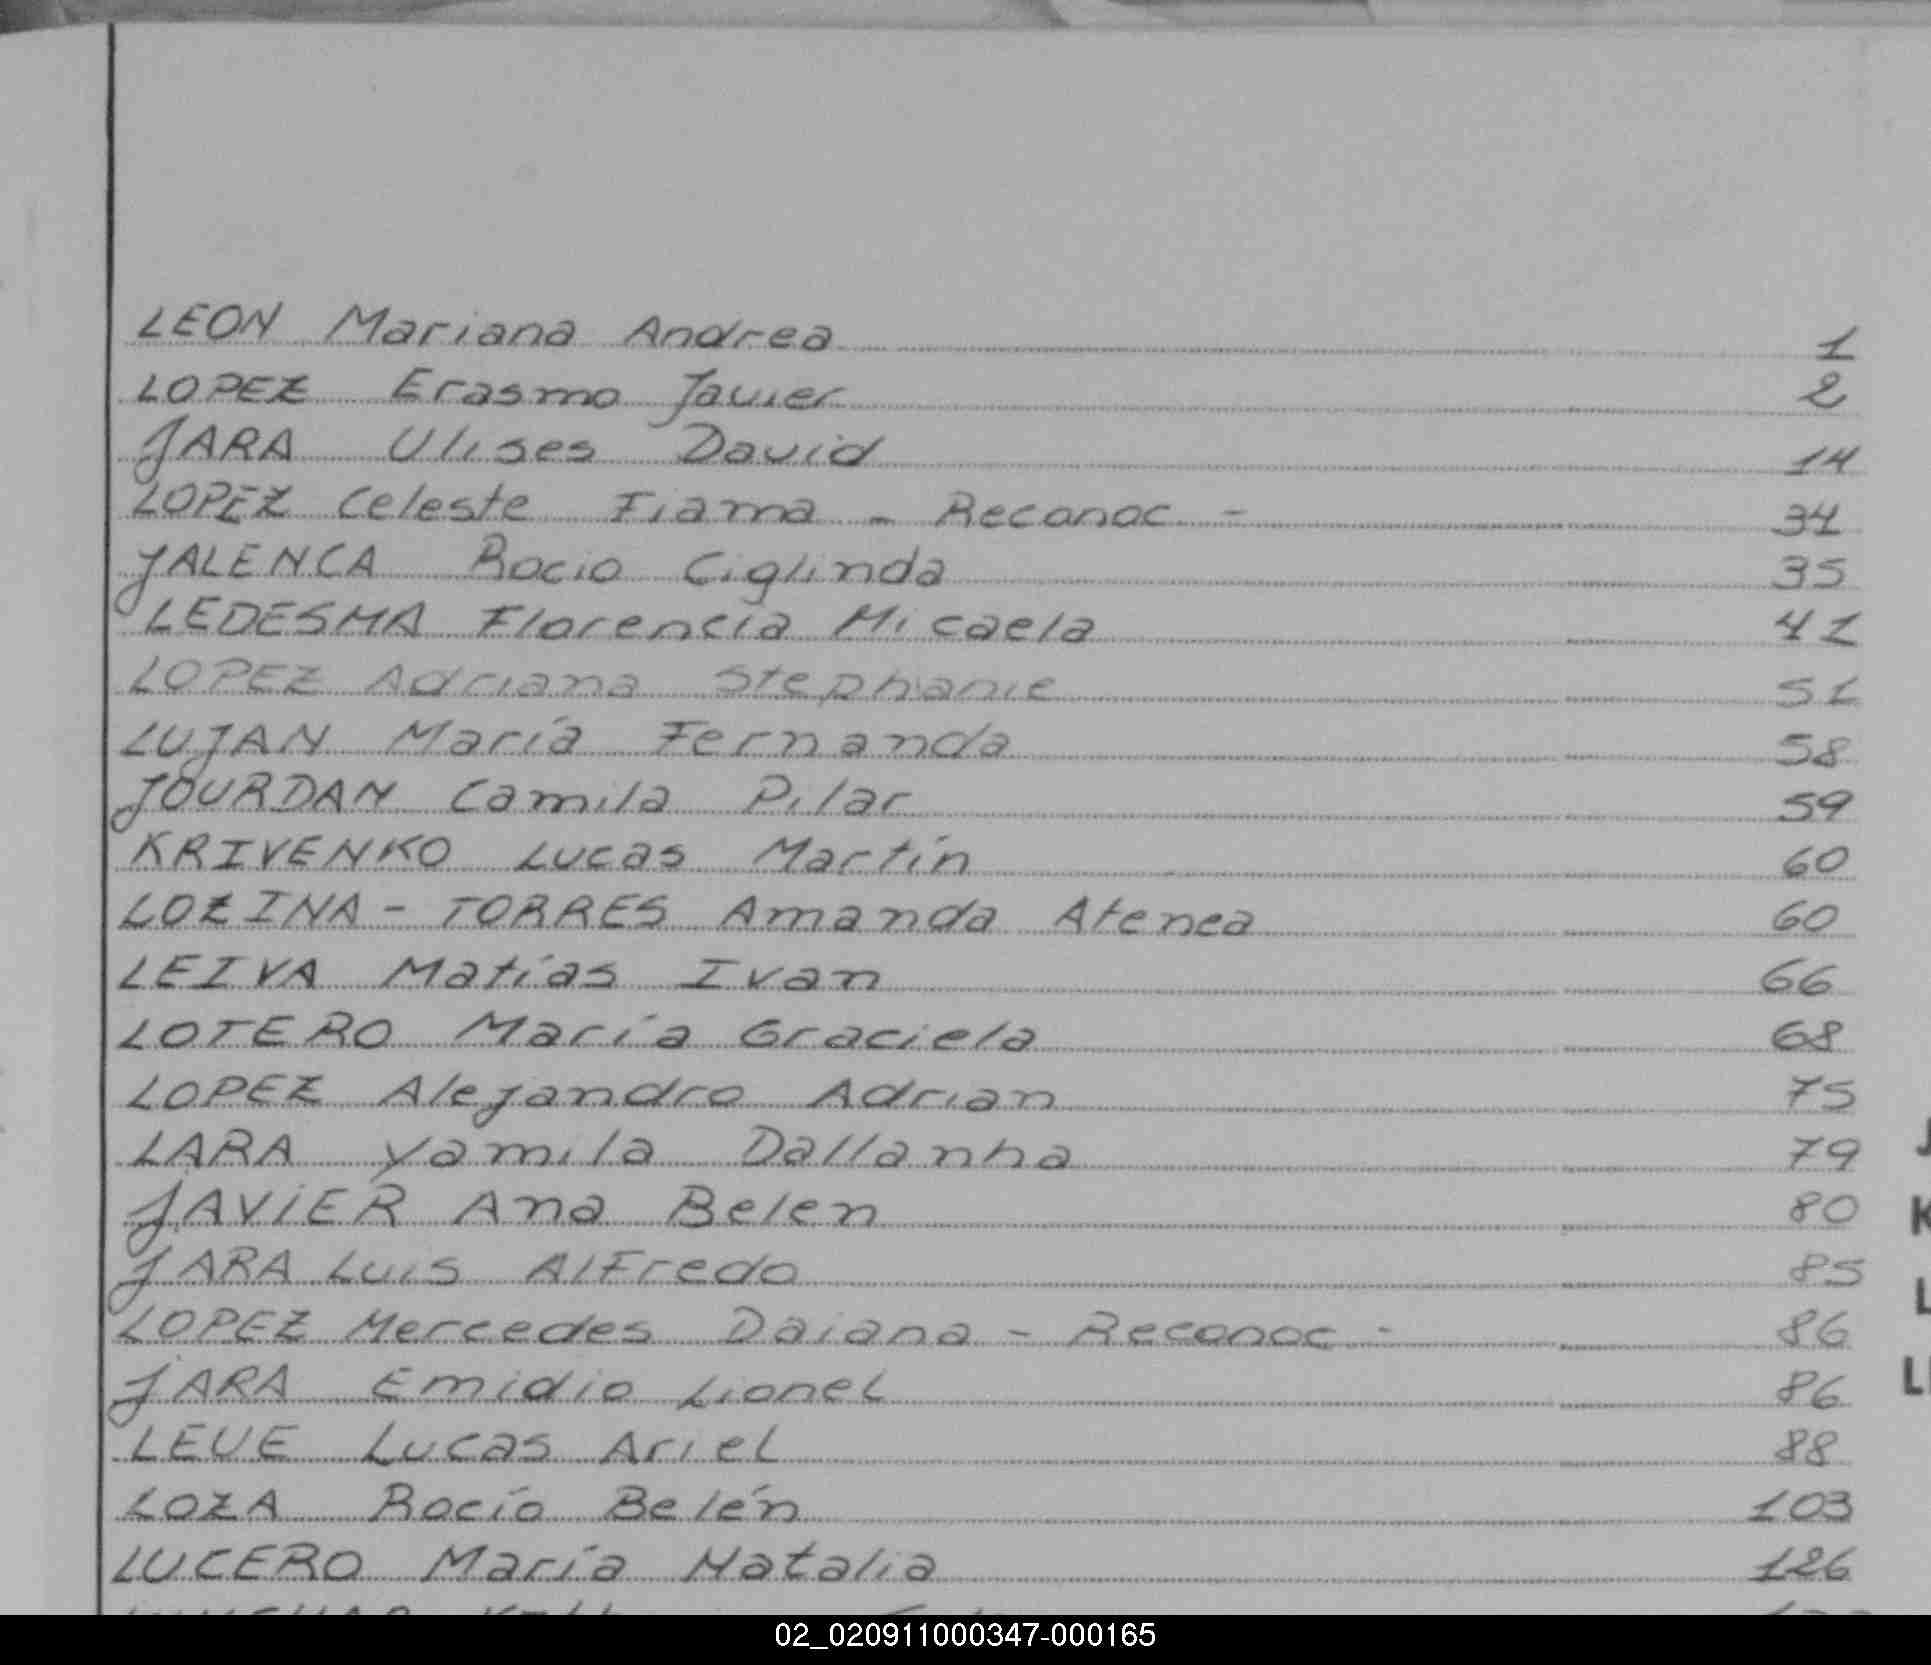 LEON Mariana Andrea 1
LOPEZ Erasmo Javier 2
JARA Ulises David 14
LOPEZ Celeste Fiama - Reconoc - 34
JALENCA Rocio Ciglinda 35
LEDESMA Florencia Micaela 41
LOPEZ Adriana Stephanie 51
LUJAN María Fernanda 58
JOURDAN Camila Pilar 59
KRIVENKO Lucas Martín 60
LOZINA - TORRES Amanda Atenea 60
LEIVA Matías Ivan 66
LOTERO María Graciela 68
LOPEZ Alejandro Adrian 75
LARA Yamila Dallanha 79
JAVIER Ana Belen 80
JARA Luis Alfredo 85
LOPEZ Mercedes Daiana - Reconoc - 86
JARA Emidio Lionel 86
LEUE Lucas Ariel 88
LOZA Rocío Belén 103
LUCERO María Natalia 126
02_020911000347-000165